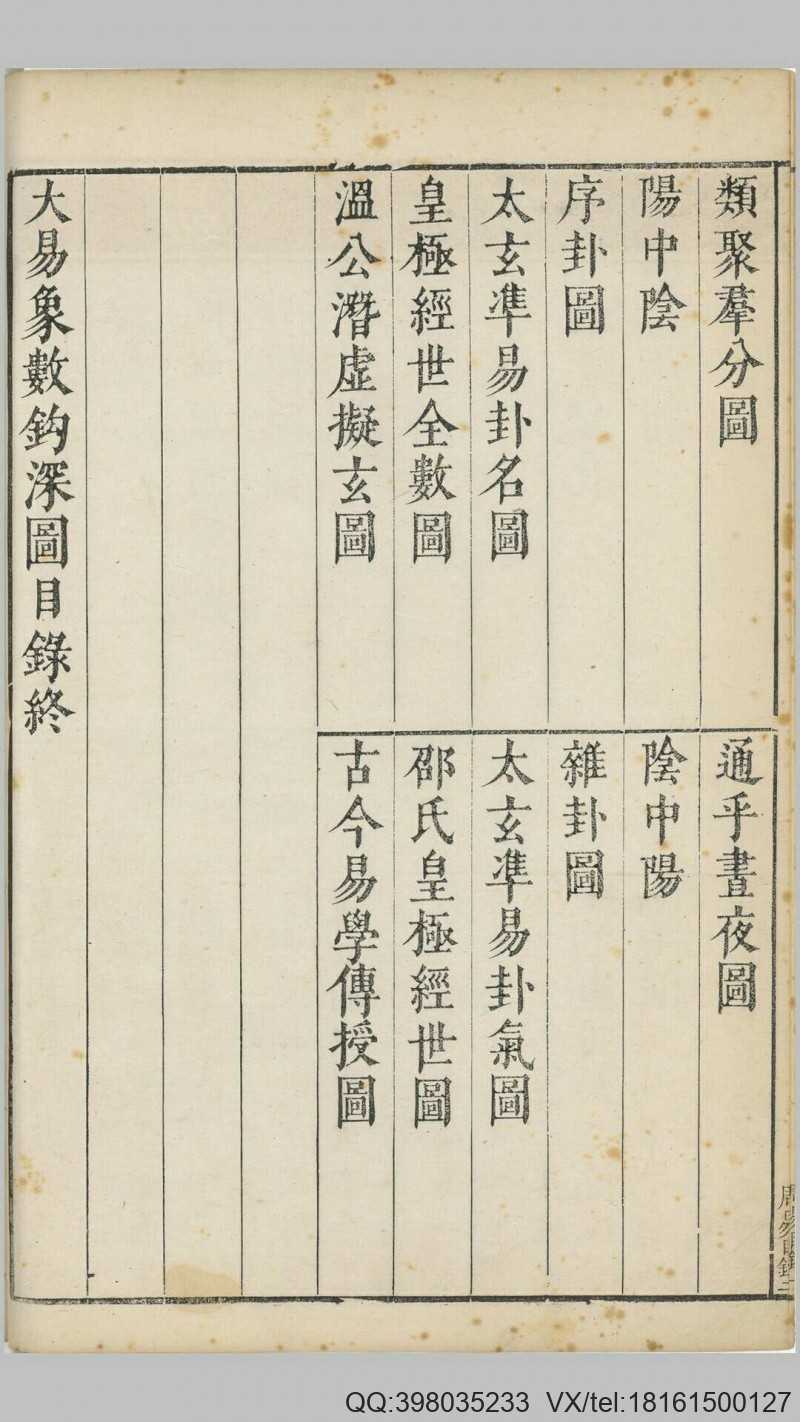 類聚羣分圖
通乎晝夜圖
陽中陰
陰中陽
序卦圖
雜卦圖
太玄準易卦名圖
太玄準易卦氣圖
皇極經世全數圖
邵氏皇極經世圖
溫公潛虛擬玄圖
古今易學傳授圖
大易象數鈎深圖目錄終
QQ:398035233 VX/tel:18161500127